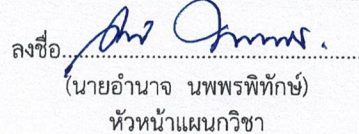 ลงชื่อ
(นายอำนาจ นพพรพิทักษ์)
หัวหน้าแผนกวิชา